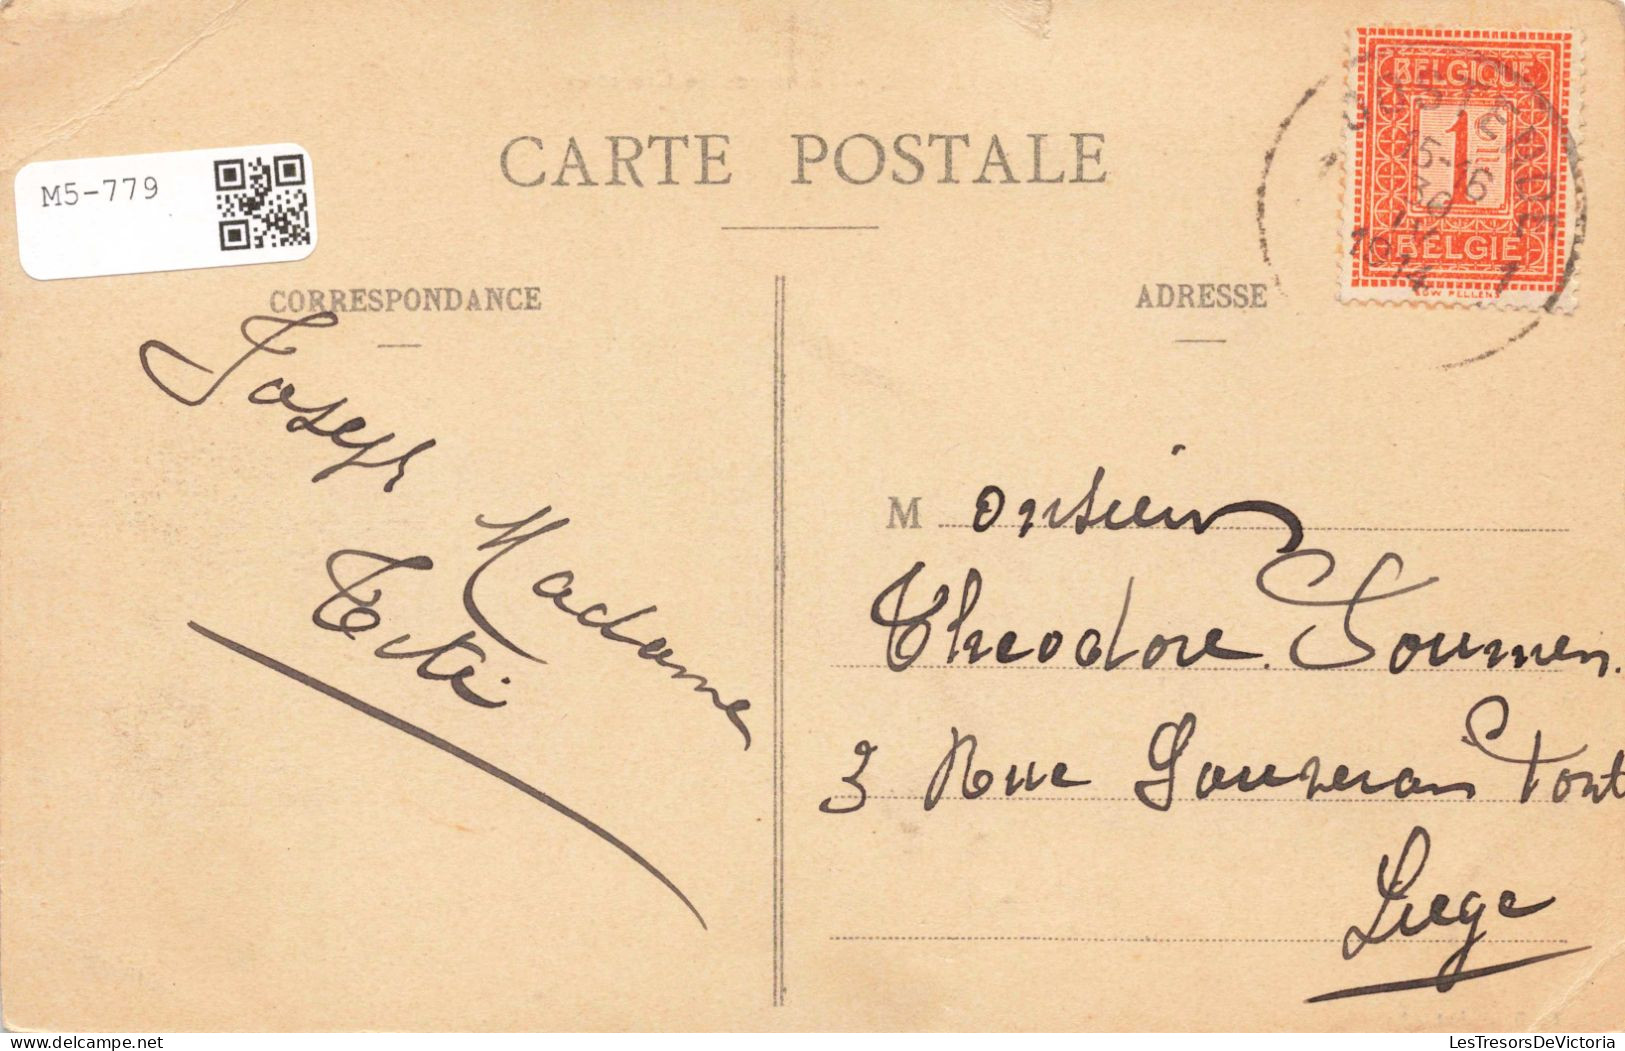 CARTE POSTALE
M5-779
CORRESPONDANCE
ADRESSE
BELGIQUE
1
BELGIE
OOSTENDE
15-16
30
1914
1
Joseph
Madame
M onsieur
Theodore
3 Rue Souverain Pont
Liege
LesTresorsDeVictoria